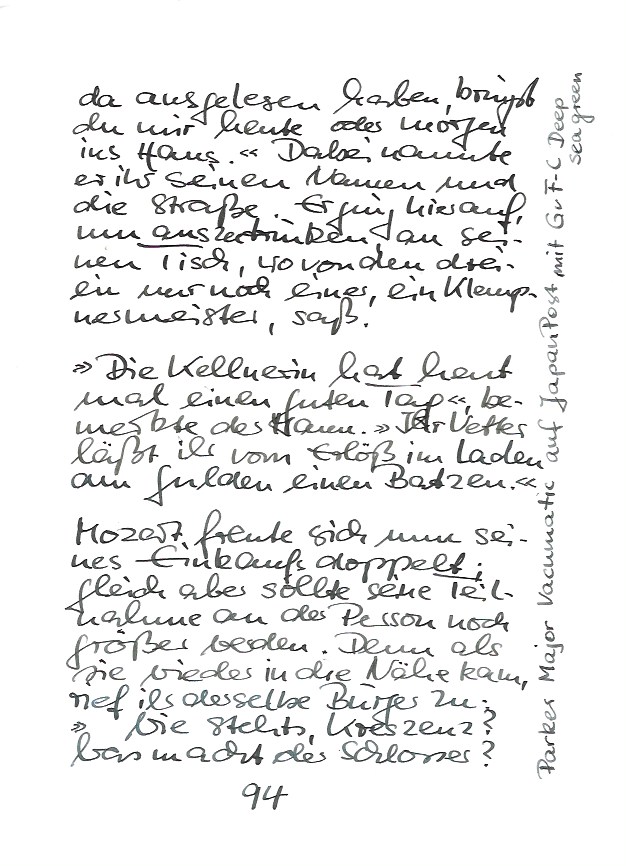 da ausgelesen haben, bringst
du mir heute oder morgen
ins Haus.« Dabei nannte
er ihr seinen Namen und
die Straße. Er ging hierauf,
um auszutrinken, an sei-
nen Tisch, wo von den drei-
en nur noch einer, ein Klemp-
nermeister, saß.
»Die Kellnerin hat heut
mal einen guten Tag«, be-
merkte der Mann. »Ihr Vetter
läßt ihr vom Erlös im Laden
am Gulden einen Batzen.«
Mozart freute sich nun sei-
nes Einkaufs doppelt;
gleich aber sollte seine Teil-
nahme an der Person noch
größer werden. Denn als
sie wieder in die Nähe kam,
rief ihr derselbe Bürger zu:
» Wie stehts, Kreszenz?
Was macht der Schlosser?
94
Parker Major Vacumatic auf JapanPost mit GvF-C Deep
sea green